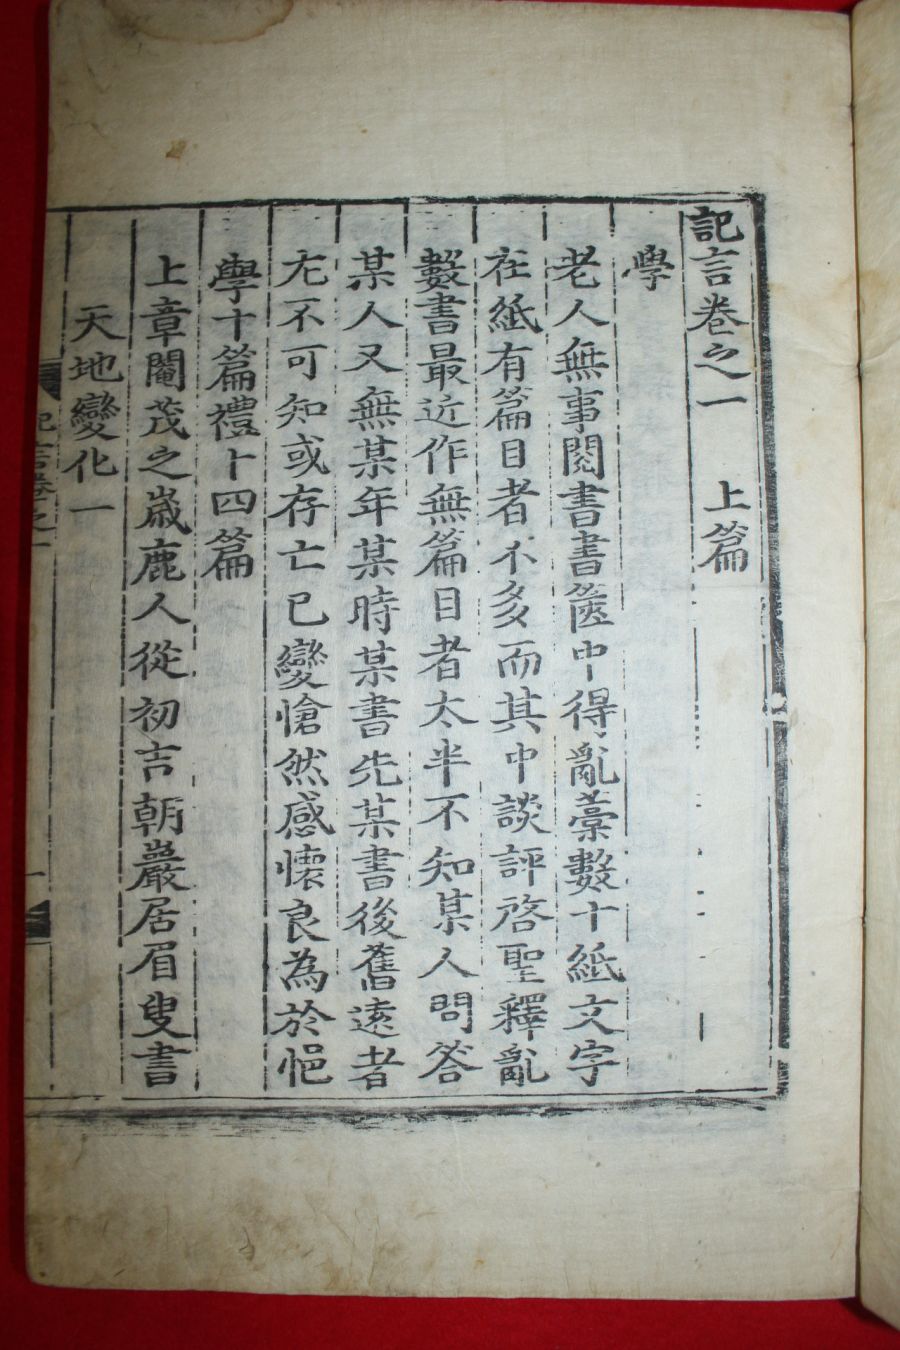 記言卷之一　上篇
學
老人無事閱書書篋中得亂藁數十紙文字
在紙有篇目者不多而其中談評啓聖釋亂
數書最近作無篇目者太半不知某人問答
某人又無某年某時某書先某書後舊遠者
尤不可知或存亡已變愴然感懷良為於悒
學十篇禮卜四篇
上章閹茂之歲鹿人從初吉朝巖居眉叟書
天地變化一
記言卷之一
一